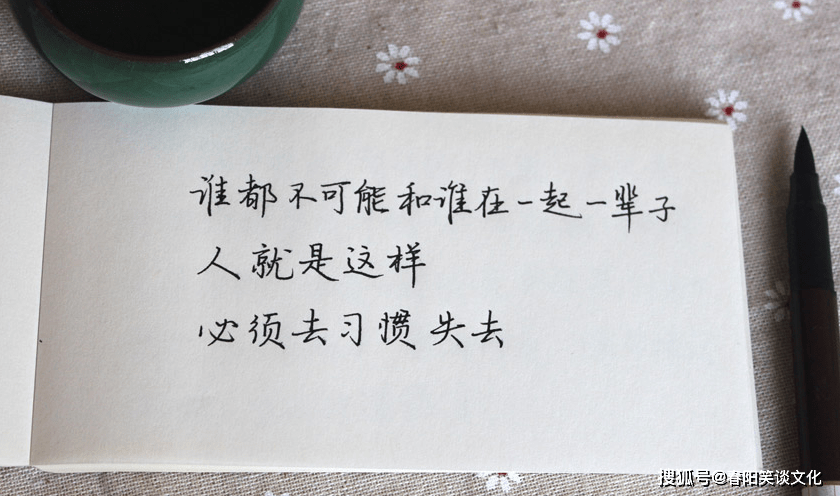 谁都不可能和谁在一起一辈子
人就是这样
必须去习惯失去
搜狐号@春阳笑谈文化